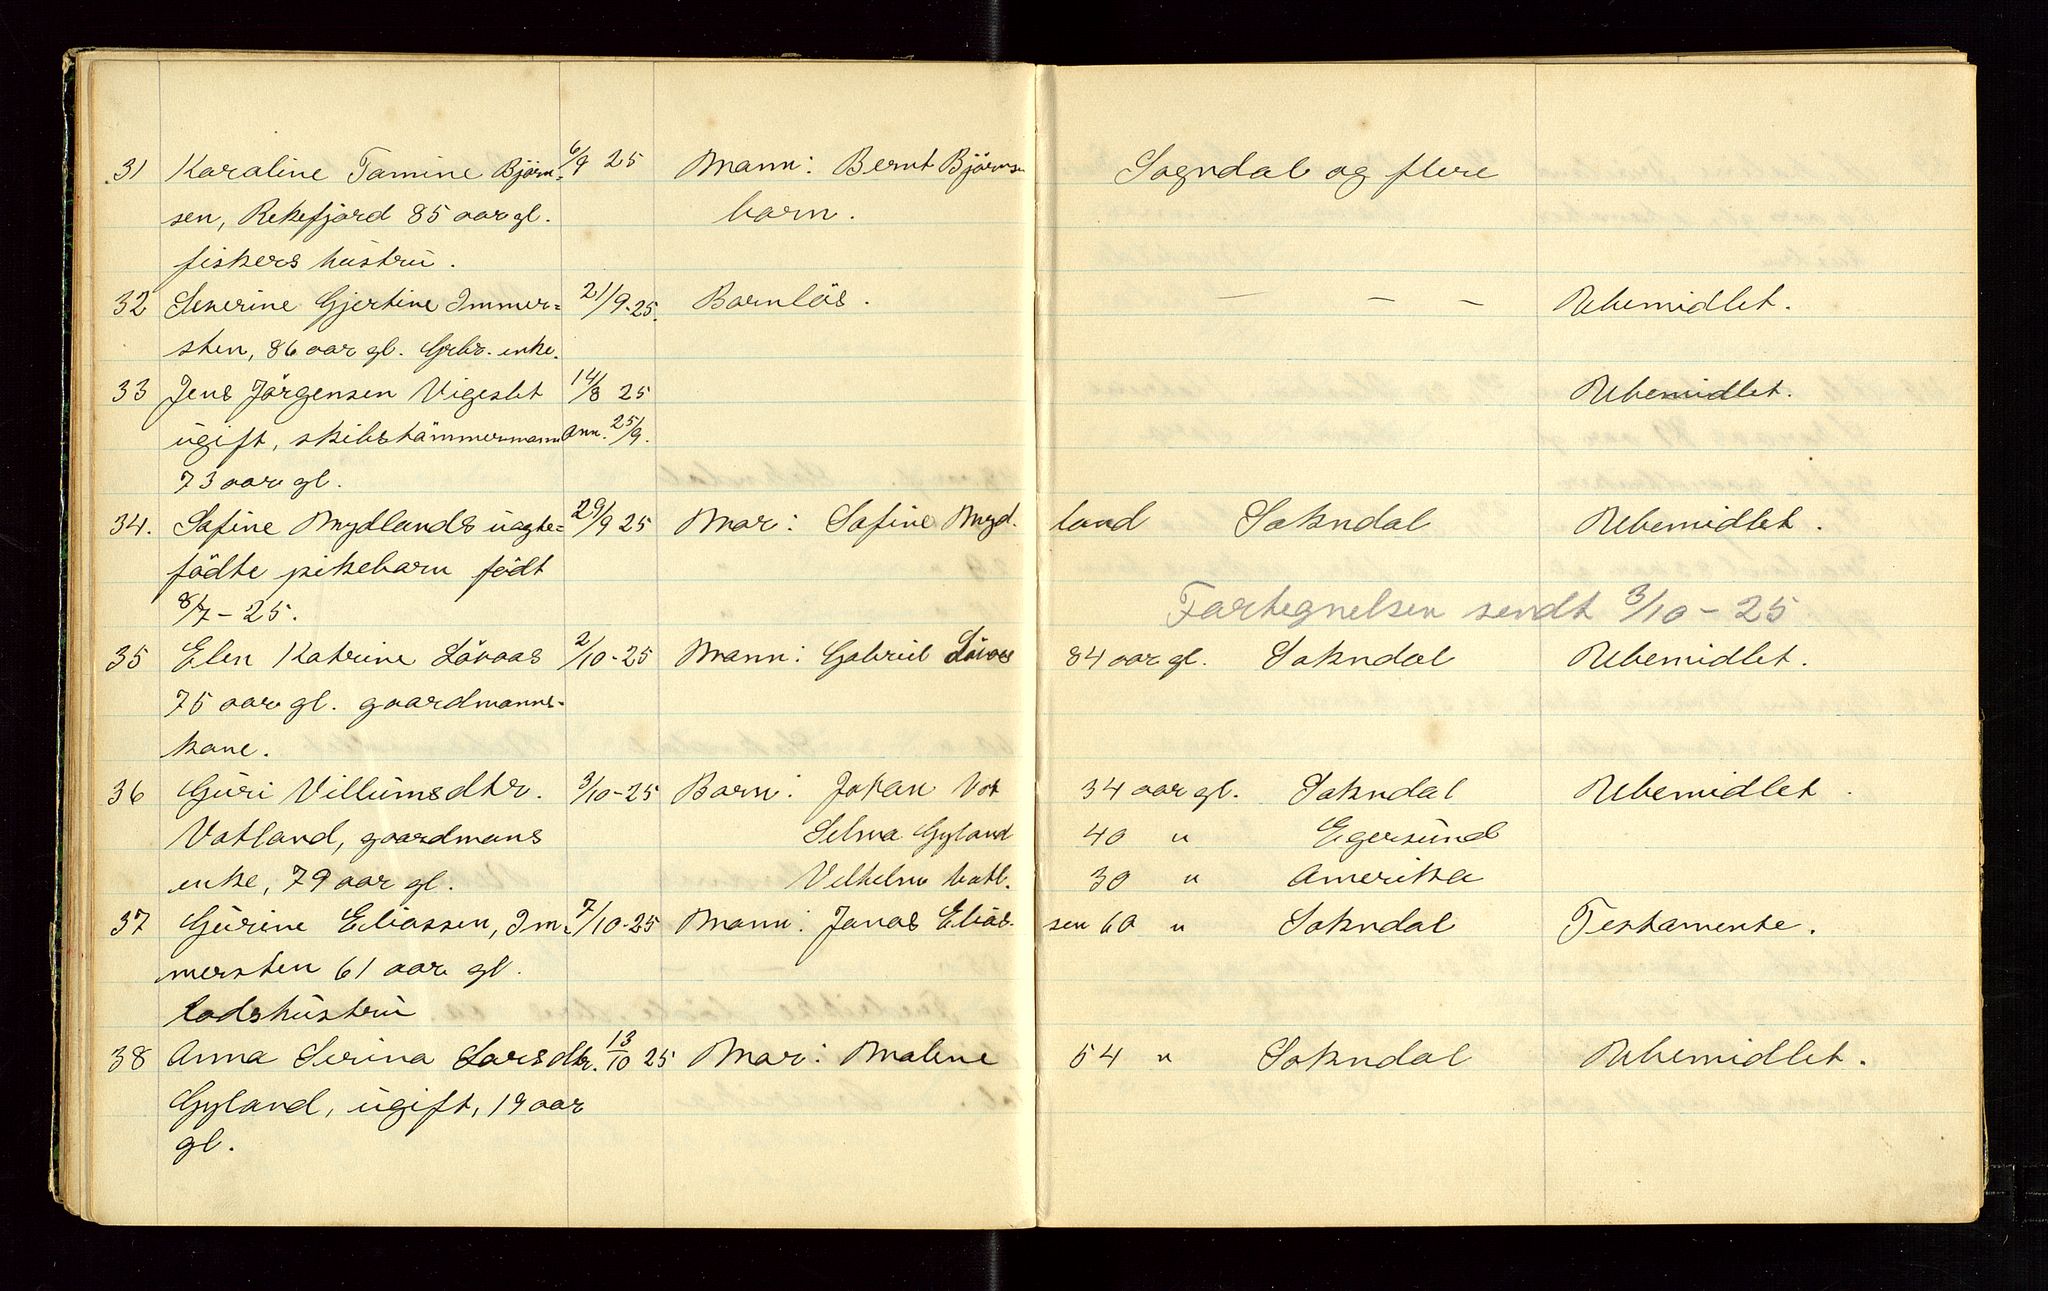 31 Karaline Tomine Björn= 6/9 25 Mann: Bernt Björnsen Sogndal og flere
sen, Rekefjord 85 aar gl. barn.
fiskers hustru.
32 Severine Gjertine Immer= 21/9-25. Barnlös. — — — Ubemidlet.
sten, 86 aar gl. Grbr. enke.
33 Jens Jörgensen Vigeslet 14/8 25 Ubemidlet.
ugift, skibstömmermann Ann. 25/9.
73 aar gl.
34. Sofine Mydlands uægte= 29/9 25 Mor: Sofine Myd. land Sokndal Ubemidlet.
födte pikebarn födt
8/7-25. Fortegnelsen sendt 3/10-25
35 Elen Katrine Lövaas 2/10-25 Mann: Gabriel Lövaas 84 aar gl. Sokndal Ubemidlet.
75 aar gl. gaardmanns-
kone.
36 Guri Villumsdtr. 3/10-25 Barn: Johan Vat 34 aar gl. Sokndal Ubemidlet.
Vatland, gaardmans Selma Gyland 40 " Egersund
enke, 79 aar gl. Vilhelm Vatl. 30 " Amerika
37 Gurine Eliassen, Im= 7/10-25 Mann: Jonas Elias- sen 60 " Sokndal Testamente.
mersten 61 aar gl.
lodshustru
38 Anna Serina Larsdtr. 13/10 25 Mor: Malene 54 " Sokndal Ubemidlet.
Gyland, ugift, 19 aar
gl.